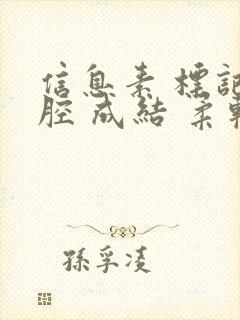 信息素標記
腔成結柔軟
孫孚凌